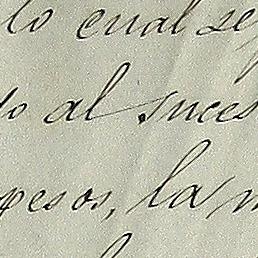 lo cual se
al suces
pesos, la